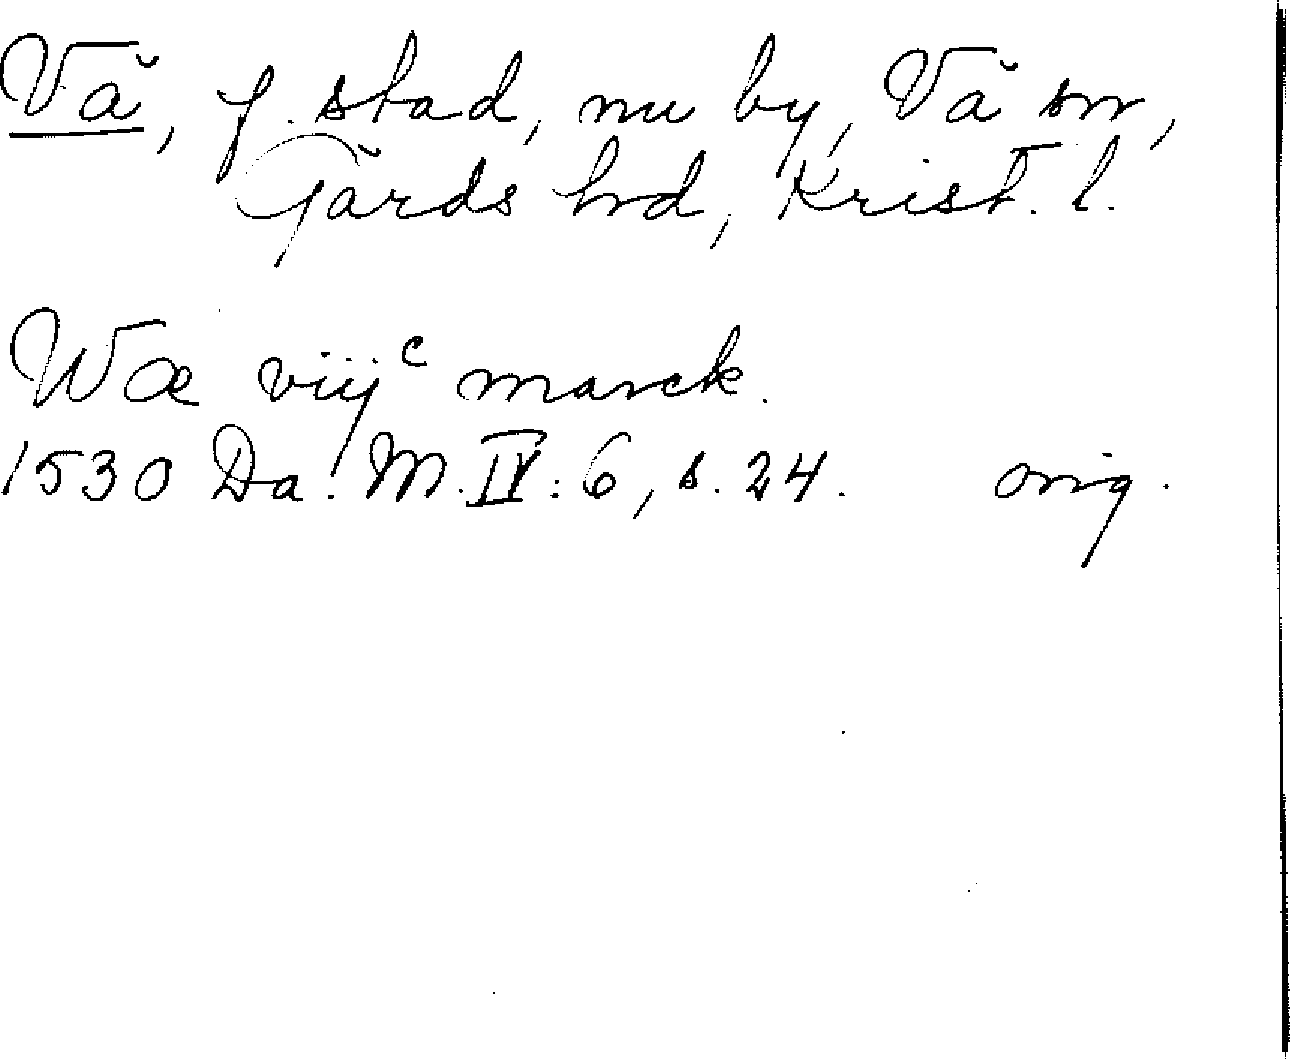 Vä, f. stad, nu by, Vä sn,
Gärds hd, Krist. l.
Wæ viijᶜ marck.
1530 Da. M. IV: 6, s. 24. orig.